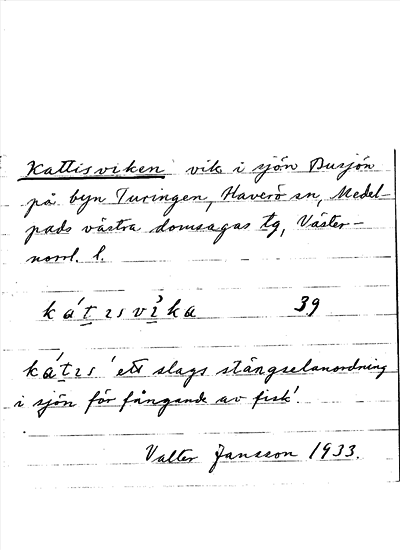 Kattisviken vik i sjön Dusjön
på byn Turingen, Haverö sn, Medel-
pads västra domsagas tg, Väster-
norrl. l.
ká´t̲ısvı̲̀ka 39
ká´t̲ıs 'ett slags stängselanordning
i sjön för fångande av fisk'.
Valter Jansson 1933.